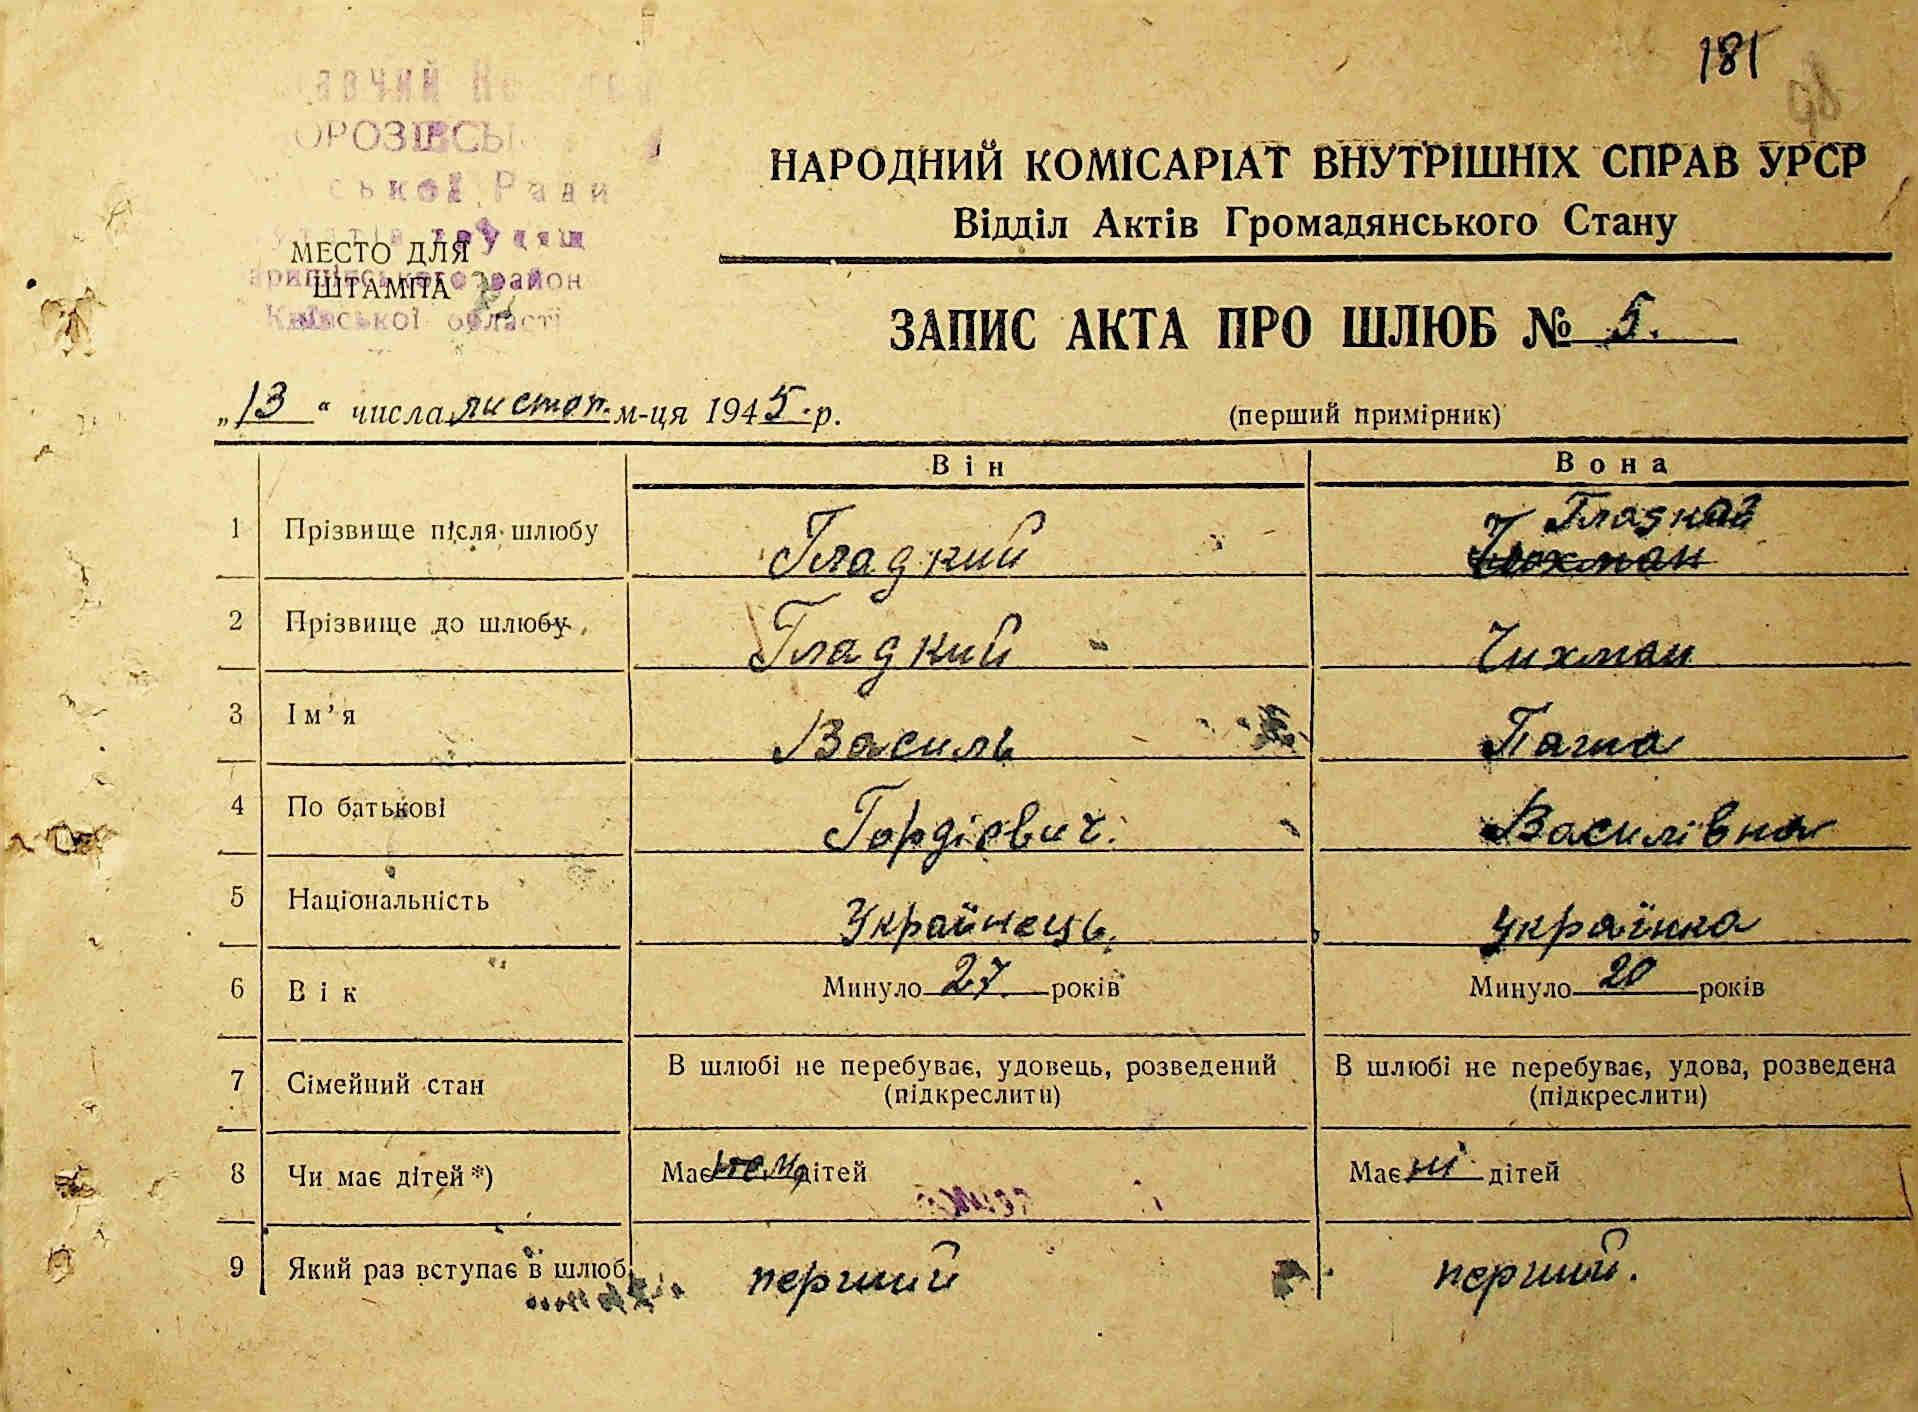 181
НАРОДНИЙ КОМІСАРІАТ ВНУТРІШНІХ СПРАВ УРСР
Відділ Актів Громадянського Стану
Ради
МЕСТО ДЛЯ
ШТАМПА
район
Київської області
ЗАПИС АКТА ПРО ШЛЮБ № 5.
„13“ числа листоп. м-ця 1945.р.
(перший примірник)
Він Вона
1 Прізвище після шлюбу Гладкий Гладкий Чихман
2 Прізвище до шлюбу Гладкий Чихман
3 Ім’я Василь Паша
4 По батькові Гордієвич. Василівна
5 Національність Українець. українка
6 Вік Минуло 27. років Минуло 20 років
7 Сімейний стан В шлюбі не перебуває, удовець, розведений (підкреслити) В шлюбі не перебуває, удова, розведена (підкреслити)
8 Чи має дітей*) Має нема дітей Має ні дітей
9 Який раз вступає в шлюб перший перший.